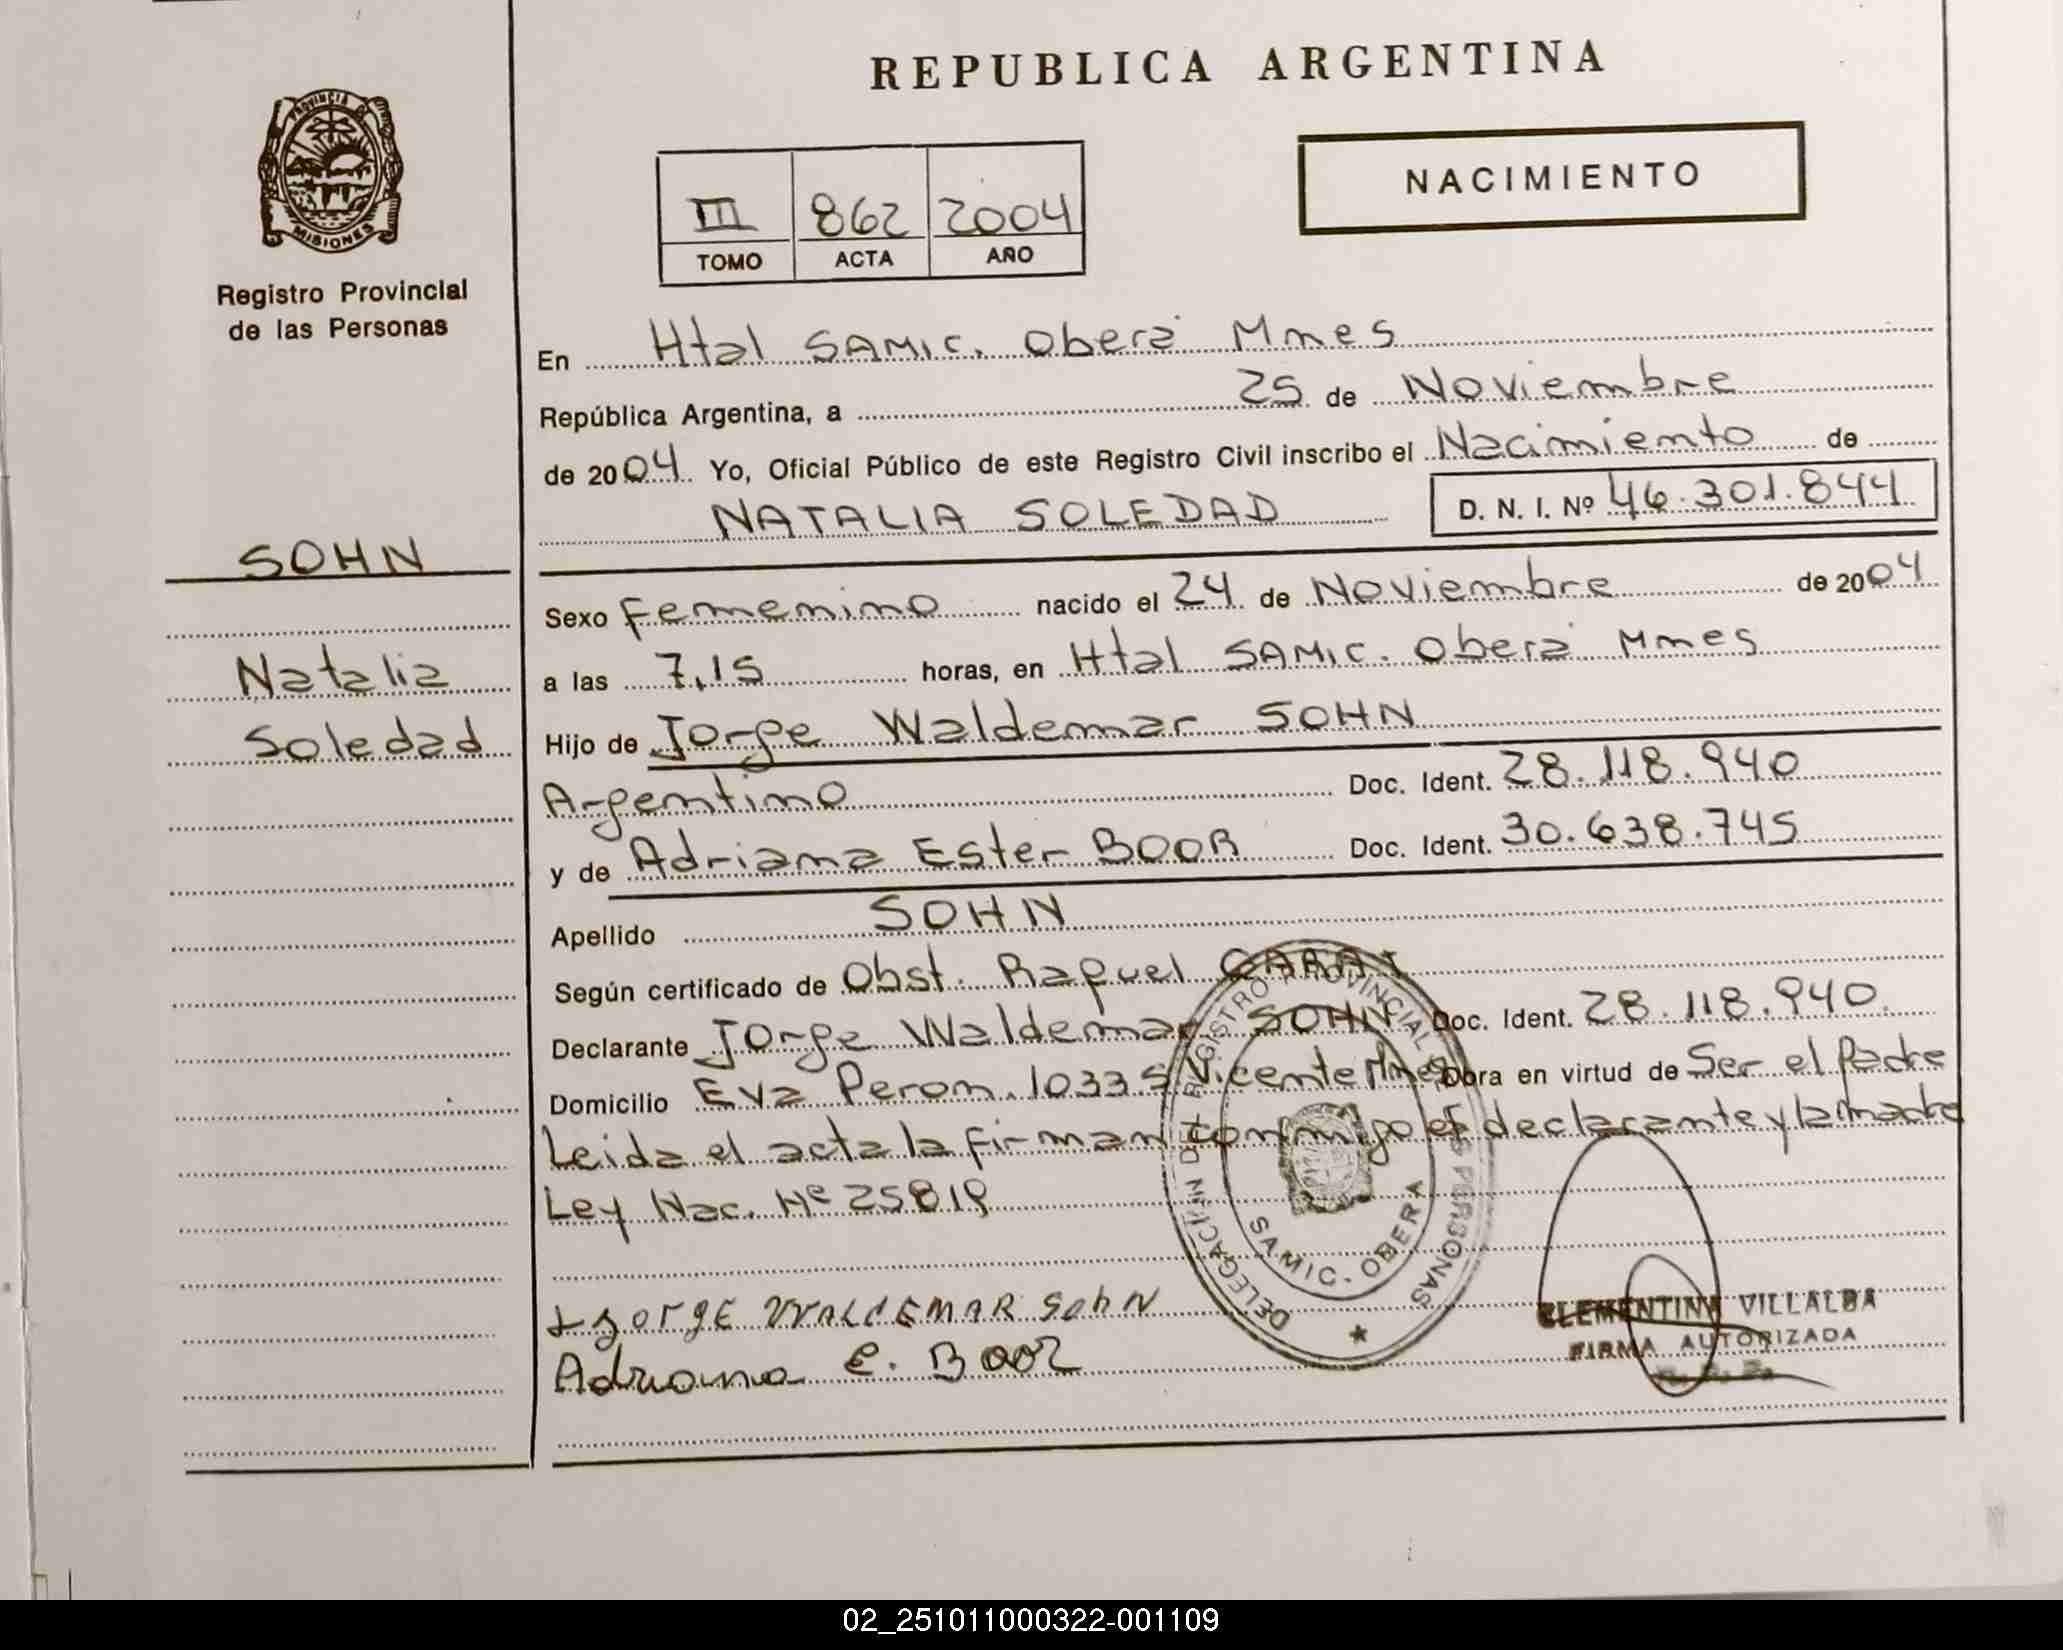 REPUBLICA ARGENTINA
PROVINCIA DE MISIONES
Registro Provincial
de las Personas
III 862 2004
TOMO ACTA AÑO
NACIMIENTO
En Htal SAMIC. Oberá Mnes
República Argentina, a 25 de Noviembre
de 2004 Yo, Oficial Público de este Registro Civil inscribo el Nacimiento de
NATALIA SOLEDAD D. N. I. Nº 46.301.844
SOHN
Natalia
Soledad
Sexo Femenino nacido el 24 de Noviembre de 2004
a las 7,15 horas, en Htal SAMIC. Oberá Mnes
Hijo de Jorge Waldemar SOHN
Argentino Doc. Ident. 28.118.940
y de Adriana Ester BOOR Doc. Ident. 30.638.745
Apellido SOHN
Según certificado de Obst. Raquel
Declarante Jorge Waldemar SOHN Doc. Ident. 28.118.940.
Domicilio Eva Peron. 1033 Vicente Mnes Obra en virtud de Ser el Padre
Leida el acta la firman conmigo el declarante y la madre
Ley Nac. Nº 25819
Jorge WALdEMAR SohN
Adriana E. Boor
DELEGACION DEL REGISTRO PROVINCIAL DE LAS PERSONAS
SAMIC. OBERA
CLEMENTINA VILLALBA
FIRMA AUTORIZADA
02_251011000322-001109